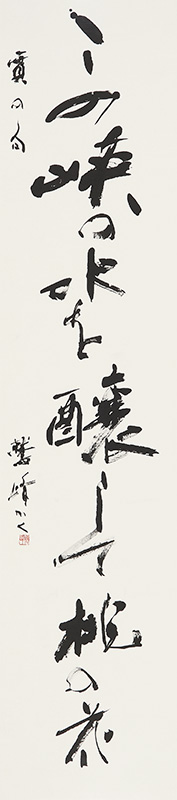 この峡の水を醸して桃の花
實の句
鷲峰かく